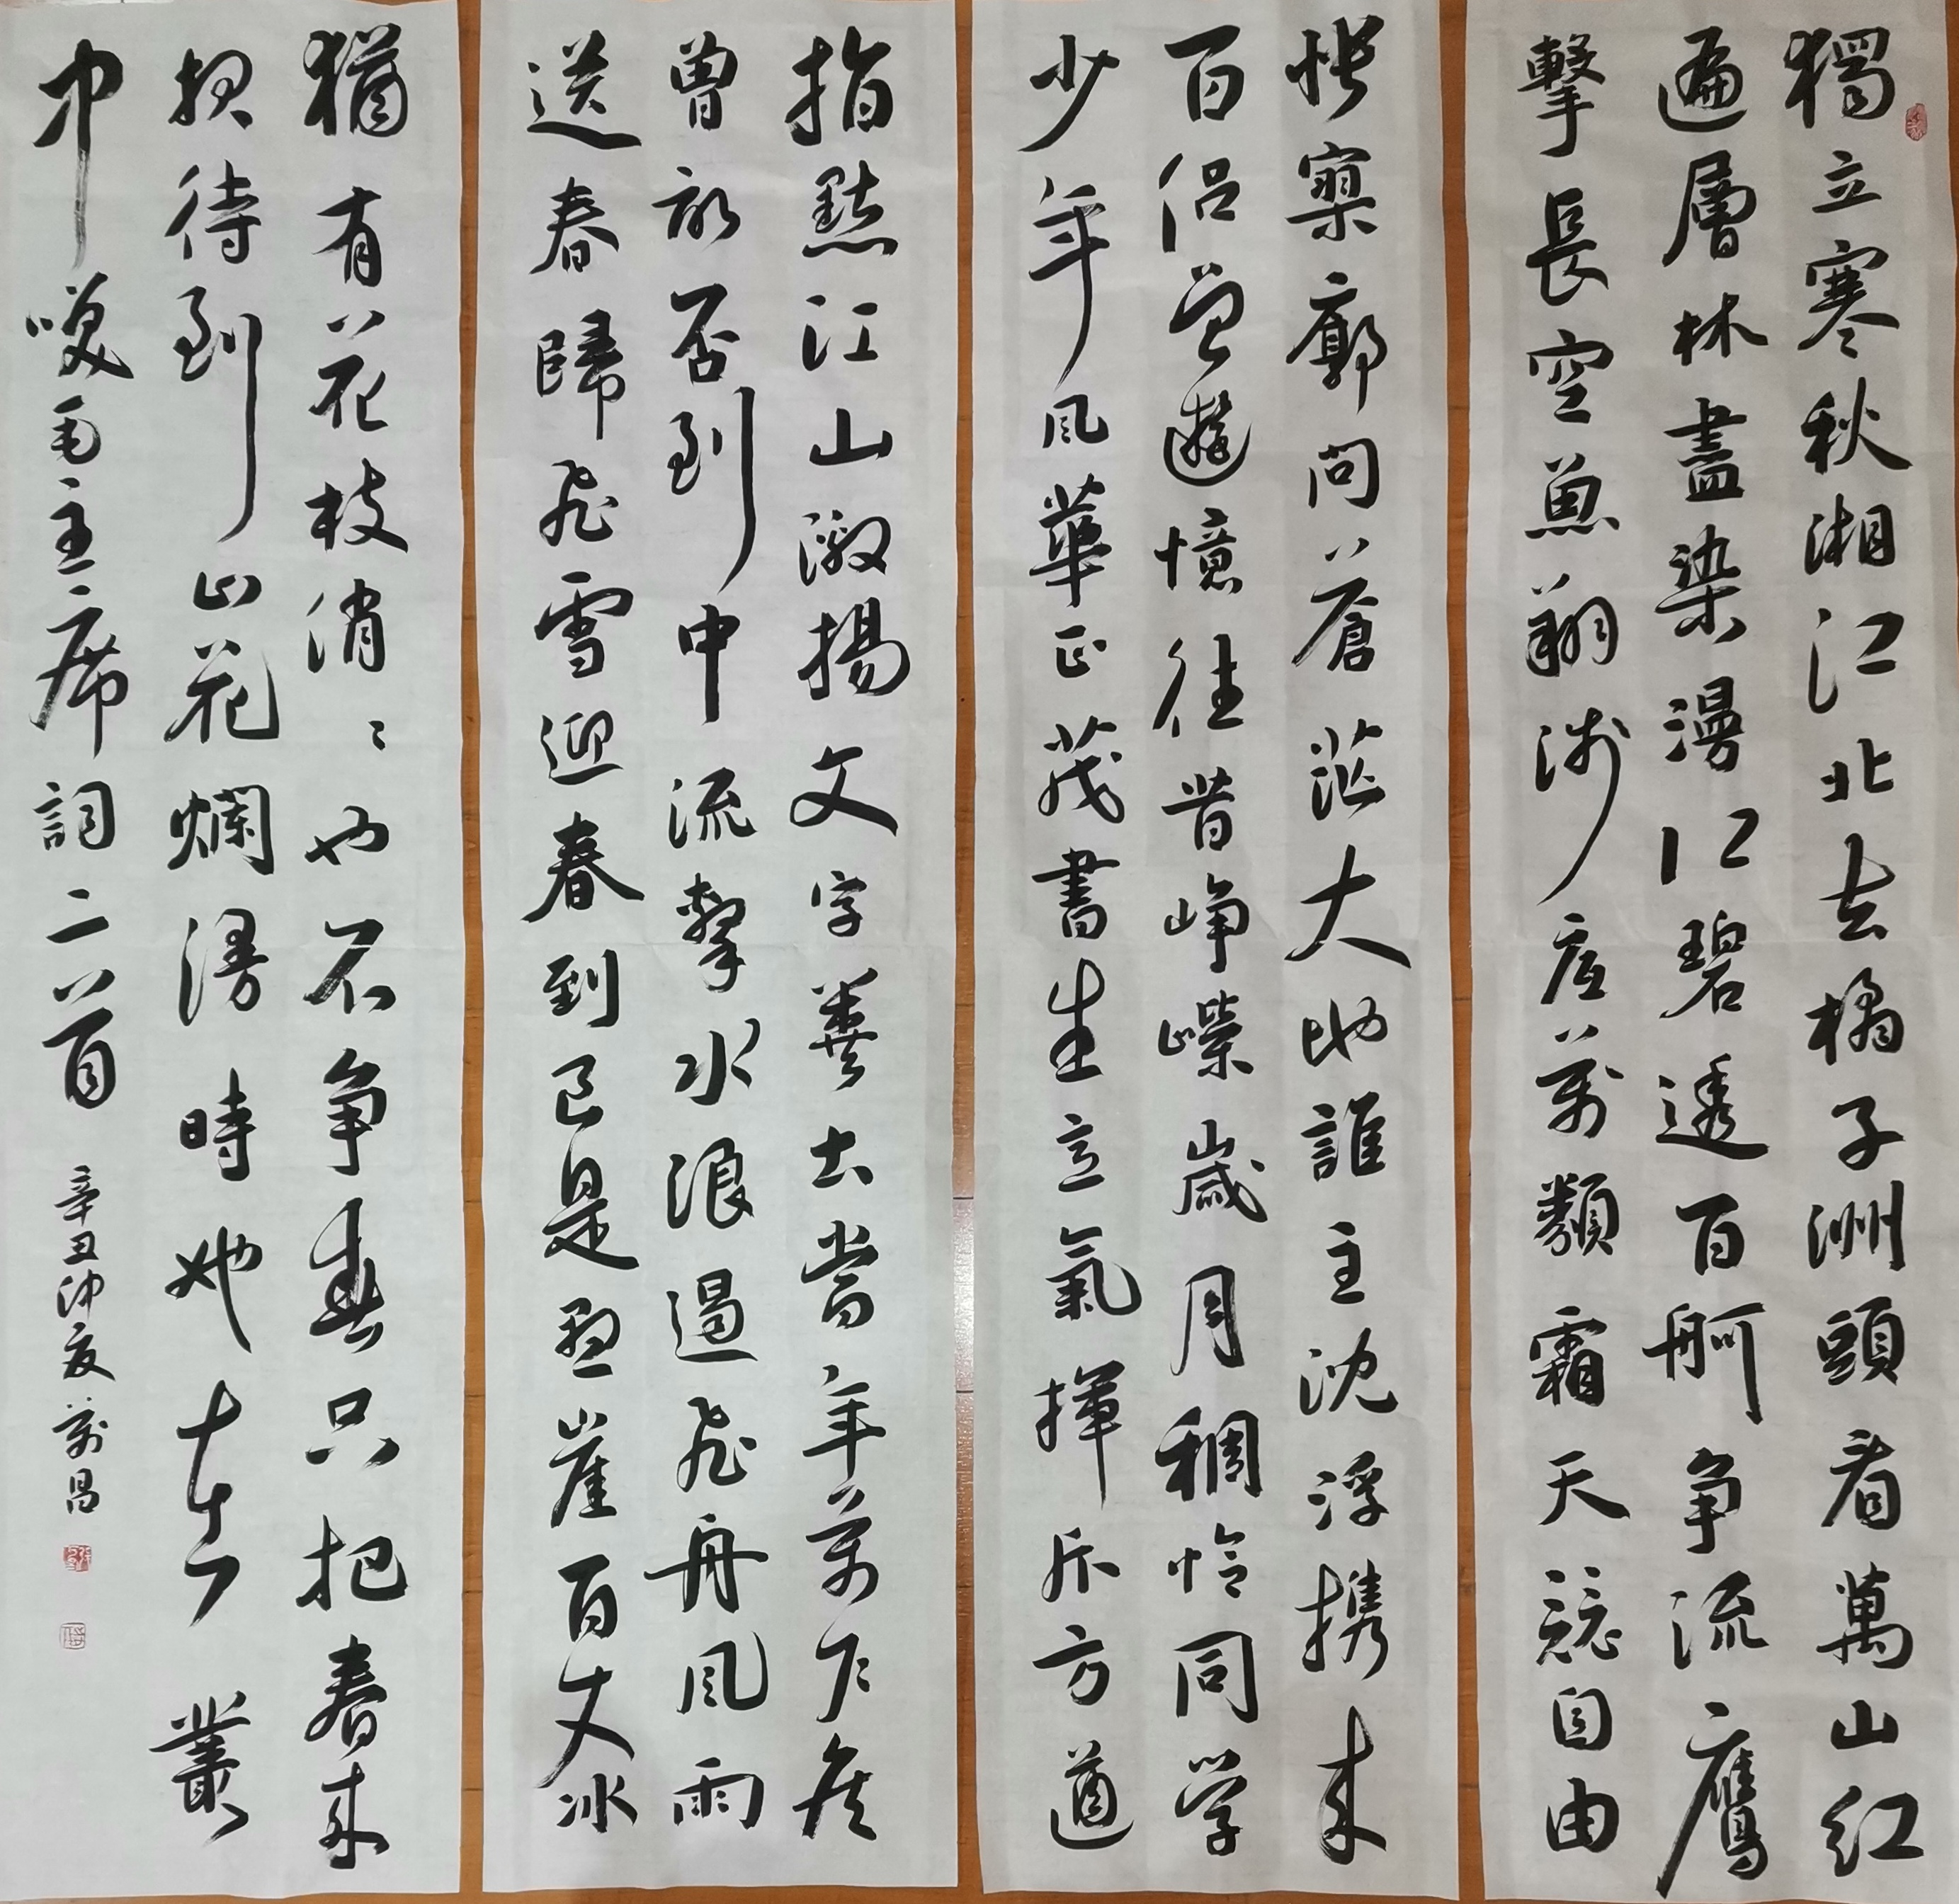 獨立寒秋湘江北去橘子洲頭看萬山红
遍層林盡染漫江碧透百舸争流鷹
擊長空魚翔淺底萬類霜天競自由
悵寥廓問蒼茫大地誰主沈浮携来
百侣曾遊憶往昔崢嶸歲月稠恰同学
少年風華正茂書生意氣揮斥方遒
指點江山激揚文字糞土當年萬户侯
曾記否到中流擊水浪遏飛舟風雨
送春歸飛雪迎春到已是懸崖百丈冰
猶有花枝俏〻也不争春只把春来
报待到山花爛漫時她在叢
中咲毛主席詞二首
辛丑仲夏萬昌